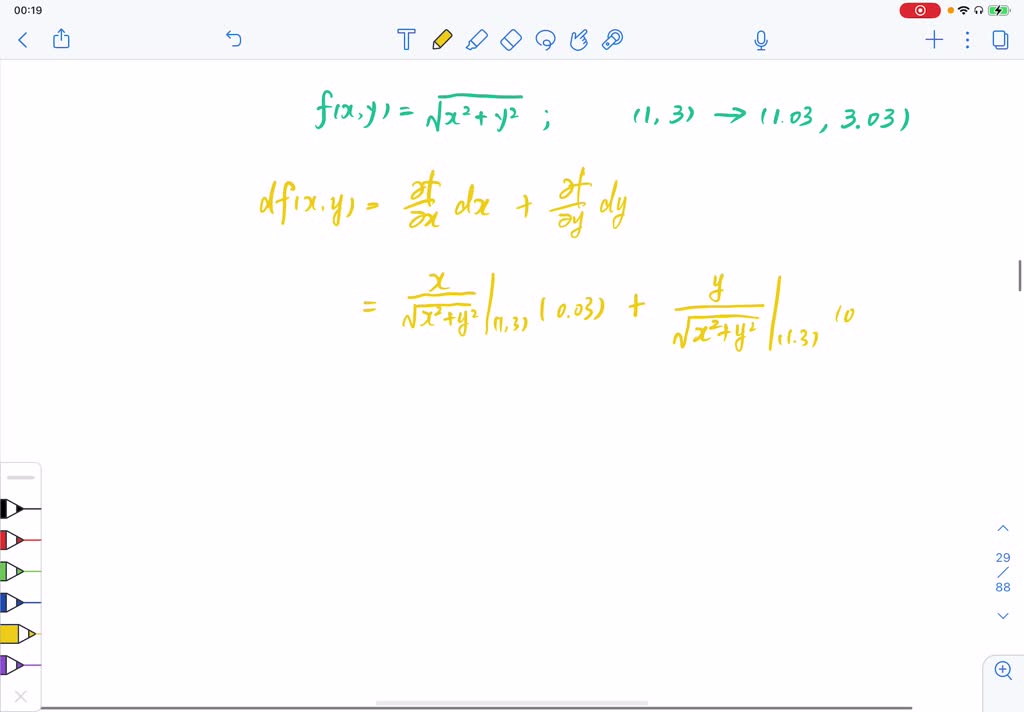 00:19
f(x,y) = √(x²+y²) ; (1,3) → (1.03, 3.03)
df(x,y) = ∂f/∂x dx + ∂f/∂y dy
= x/√(x²+y²) |(1,3) (0.03) + y/√(x²+y²) |(1.3) (0
29
/
88